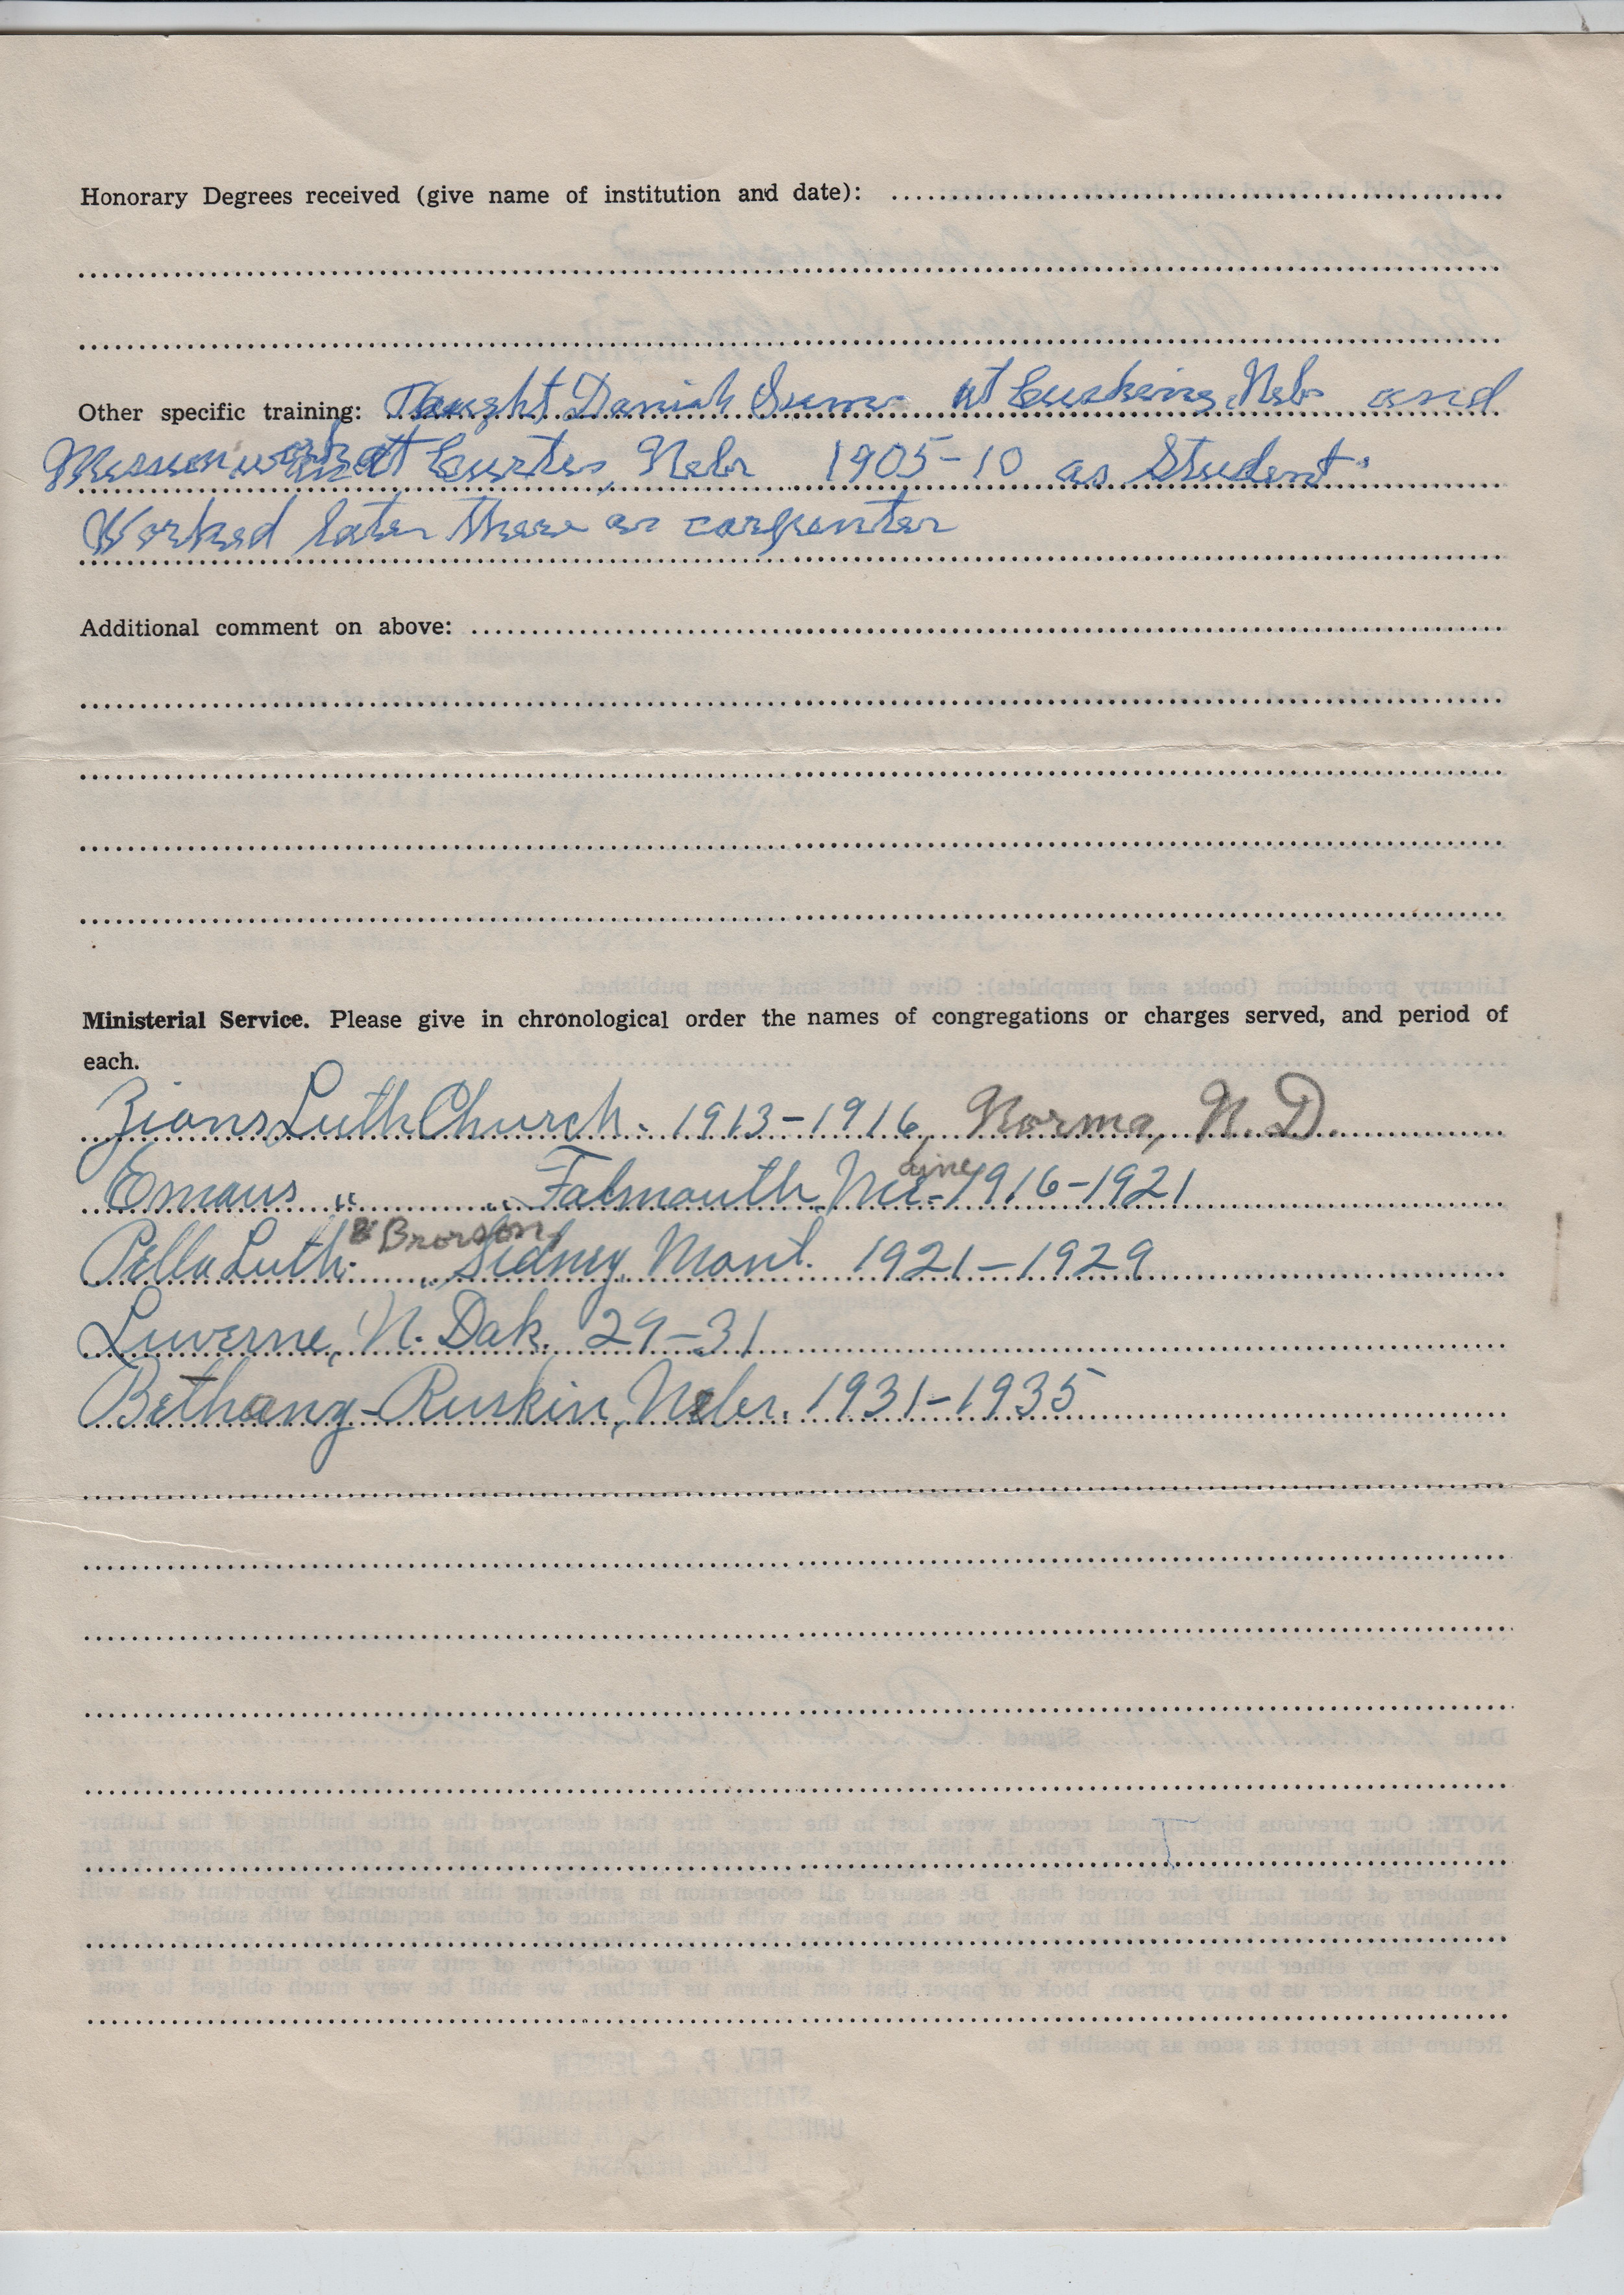 Honorary Degrees received (give name of institution and date):
Other specific training: Taught Danish at Cushing, Nebr and
Mission work at Curtis, Nebr 1905-10 as Student.
Worked later there as carpenter
Additional comment on above:
Ministerial Service. Please give in chronological order the names of congregations or charges served, and period of
each.
Zions Luth Church. 1913-1916, Norma, N.D.
Emaus " " Falmouth, Me. aine 1916-1921
Pella Luth. & Brorson, " Sidney, Mont. 1921-1929
Luverne, N. Dak. 29-31
Bethany-Ruskin, Nebr. 1931-1935